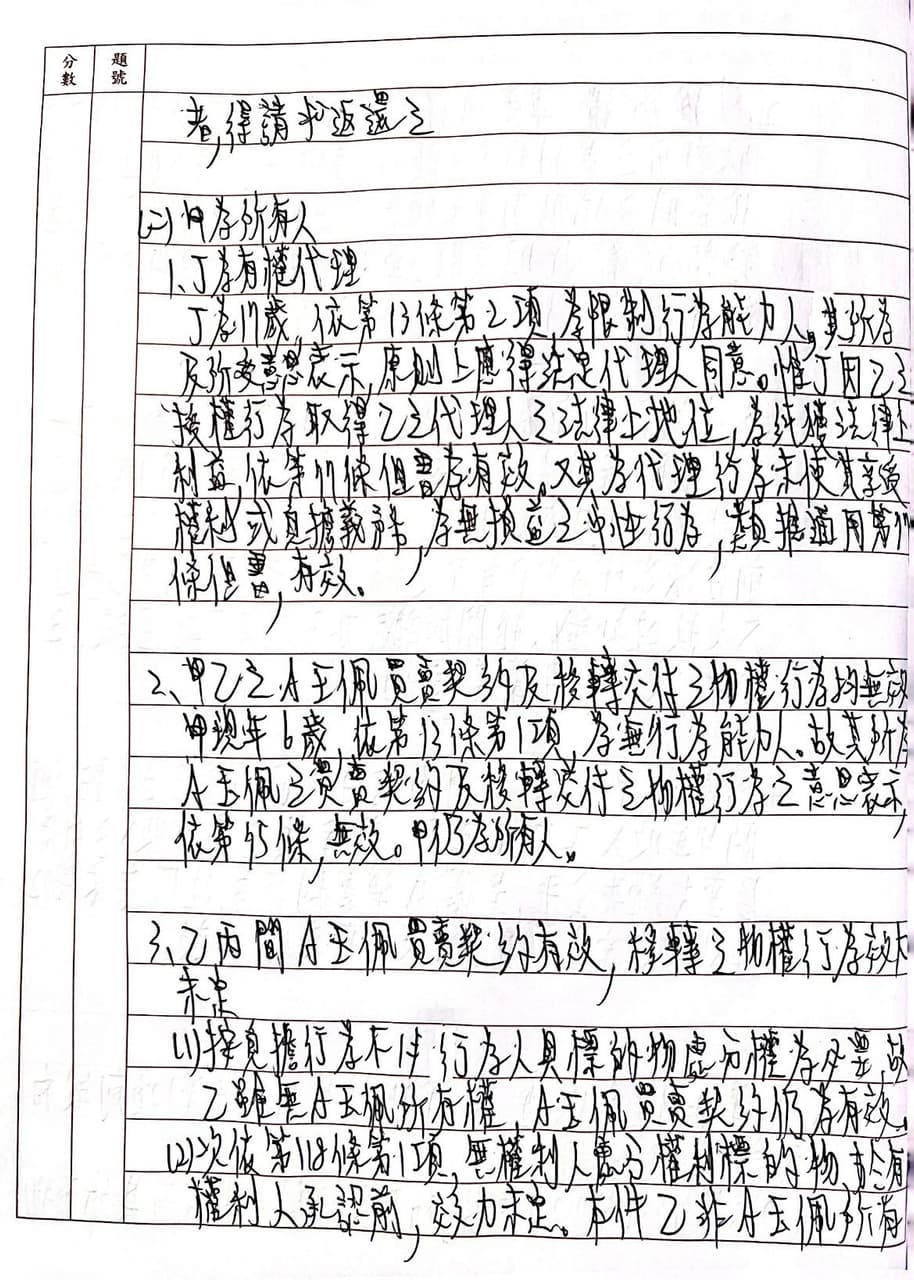 分數 題號
者,得請求返還之
(二)甲為所有人
1、丁為有權代理
丁為17歲,依第13條第2項,為限制行為能力人,其所為
及所受意思表示,原則上應得法定代理人同意。惟丁因乙之
授權行為取得乙之代理人之法律上地位,為純獲法律上
利益,依第77條但書為有效。又其為代理行為未使其享受
權利或負擔義務,為無損益之中性行為,類推適用第77
條但書,有效。
2、甲乙之A玉佩買賣契約及移轉交付之物權行為均無效
甲現年6歲,依第13條第1項,為無行為能力人。故其所為
A玉佩之買賣契約及移轉交付之物權行為之意思表示,
依第75條,無效。甲仍為所有人。
3、乙丙間A玉佩買賣契約有效,移轉之物權行為效力
未定
(1)按負擔行為不以行為人具標的物處分權為必要,故
乙雖無A玉佩所有權,A玉佩買賣契約仍為有效。
(2)次依第118條第1項,無權利人處分權利標的物,於有
權利人承認前,效力未定。本件乙非A玉佩所有